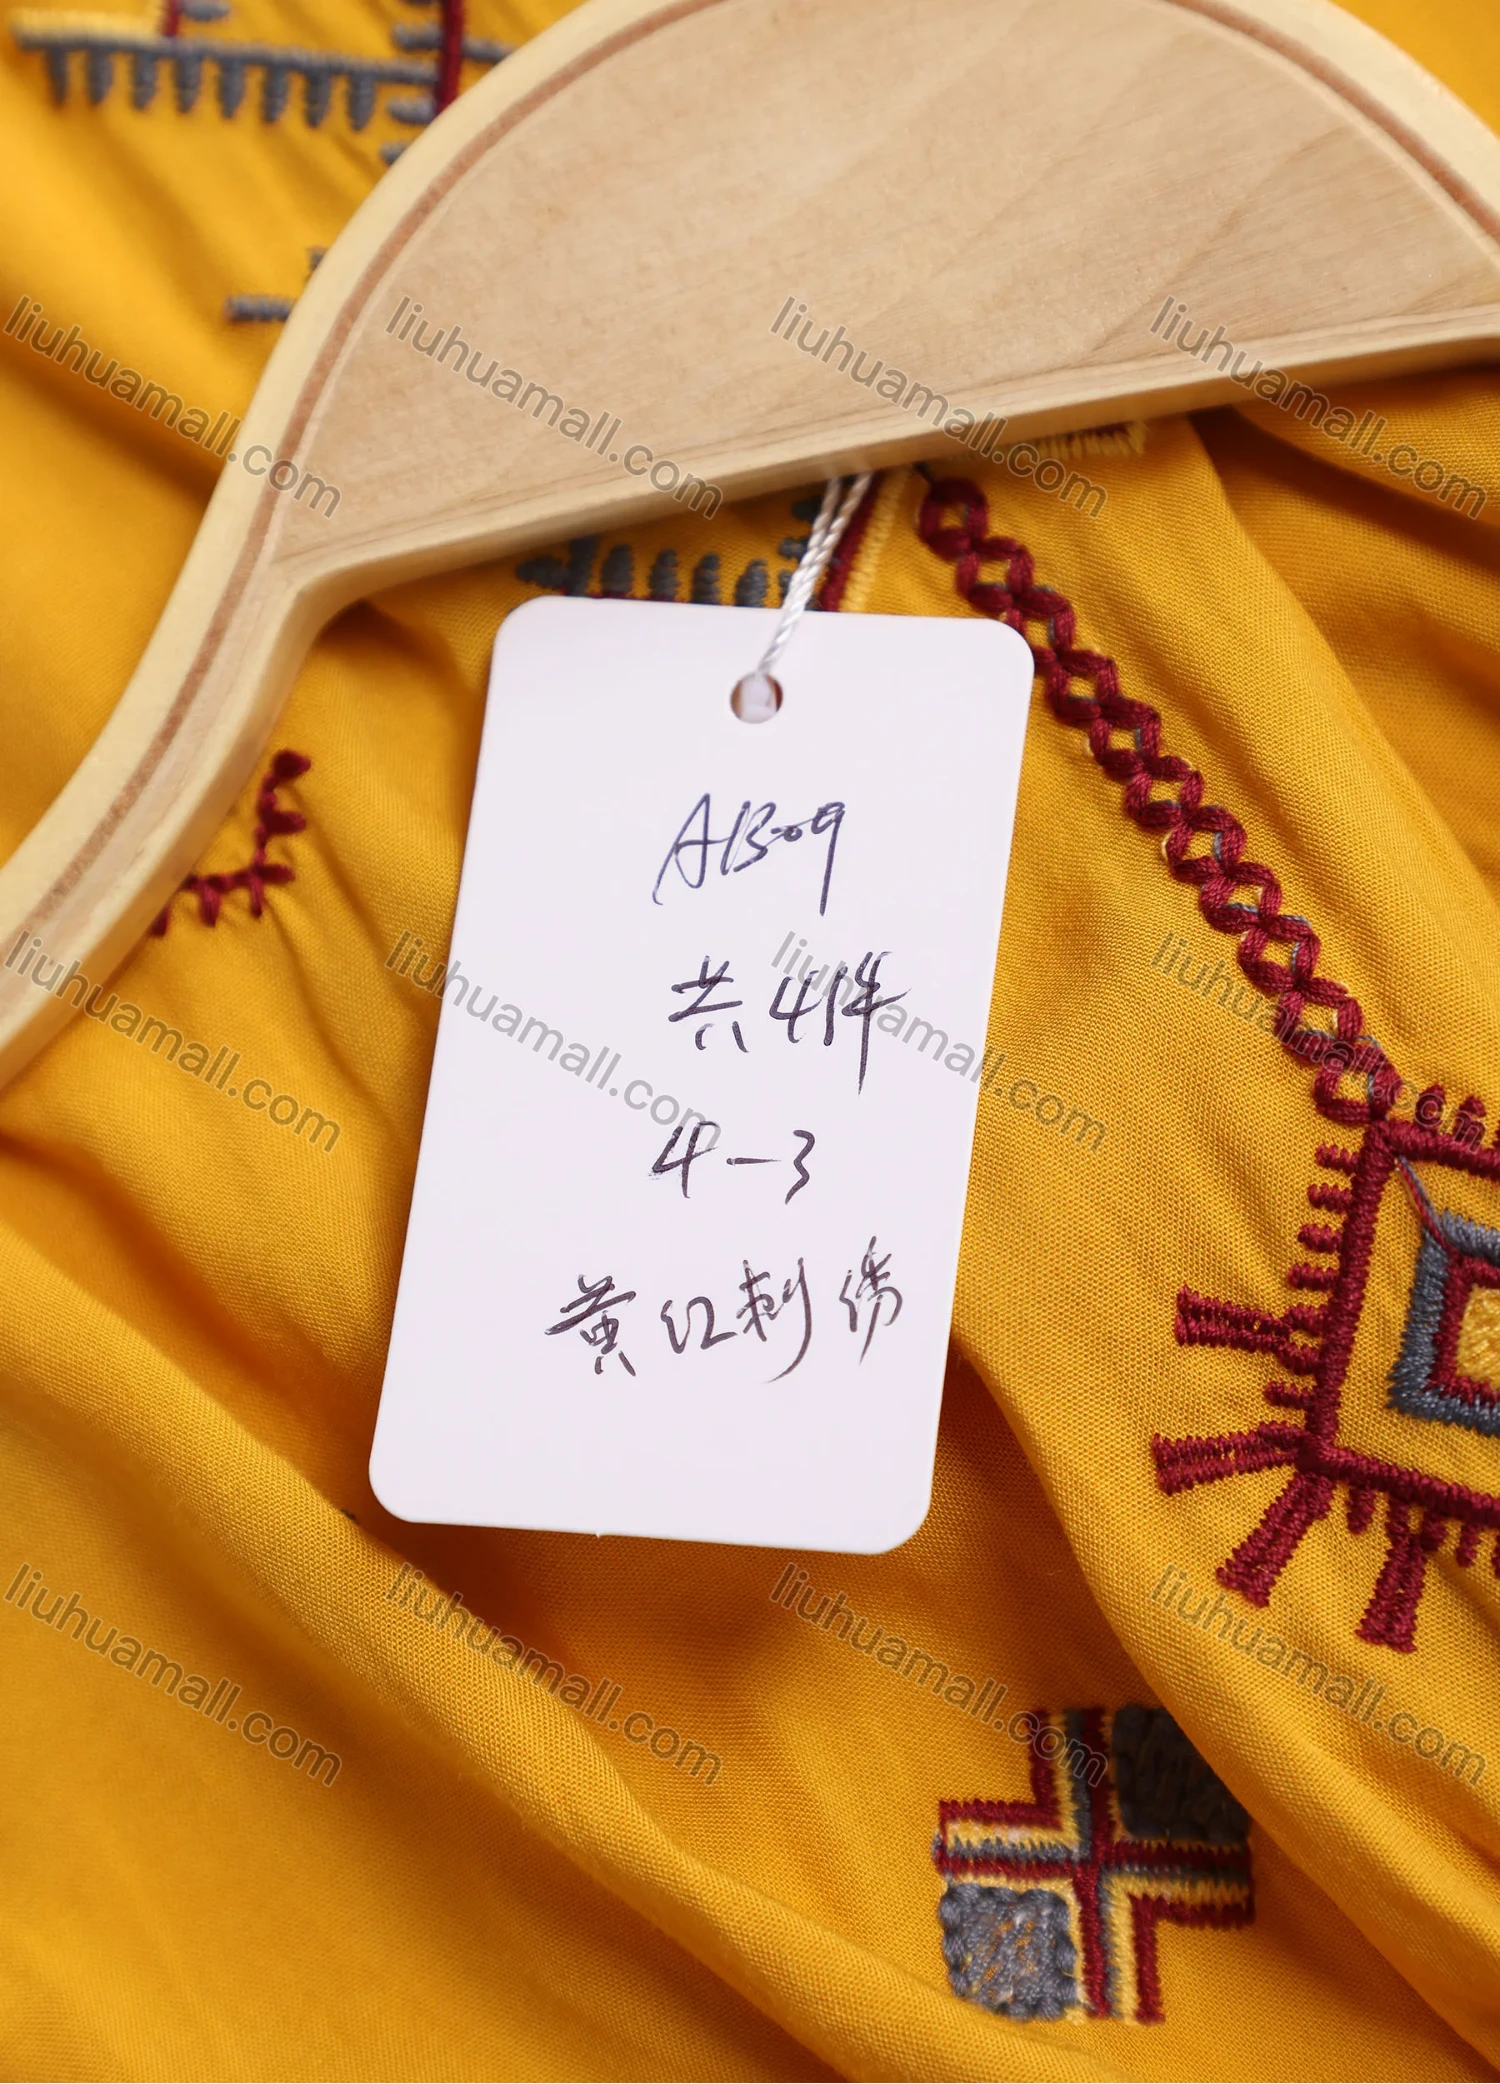 liuhuamall.com liuhuamall.com liuhuamall.com liuhuamall.com
AB09
共4件
liuhuamall.com liuhuamall.com liuhuamall.com liuhuamall.com
4-3
黄红刺绣
liuhuamall.com liuhuamall.com liuhuamall.com liuhuamall.com